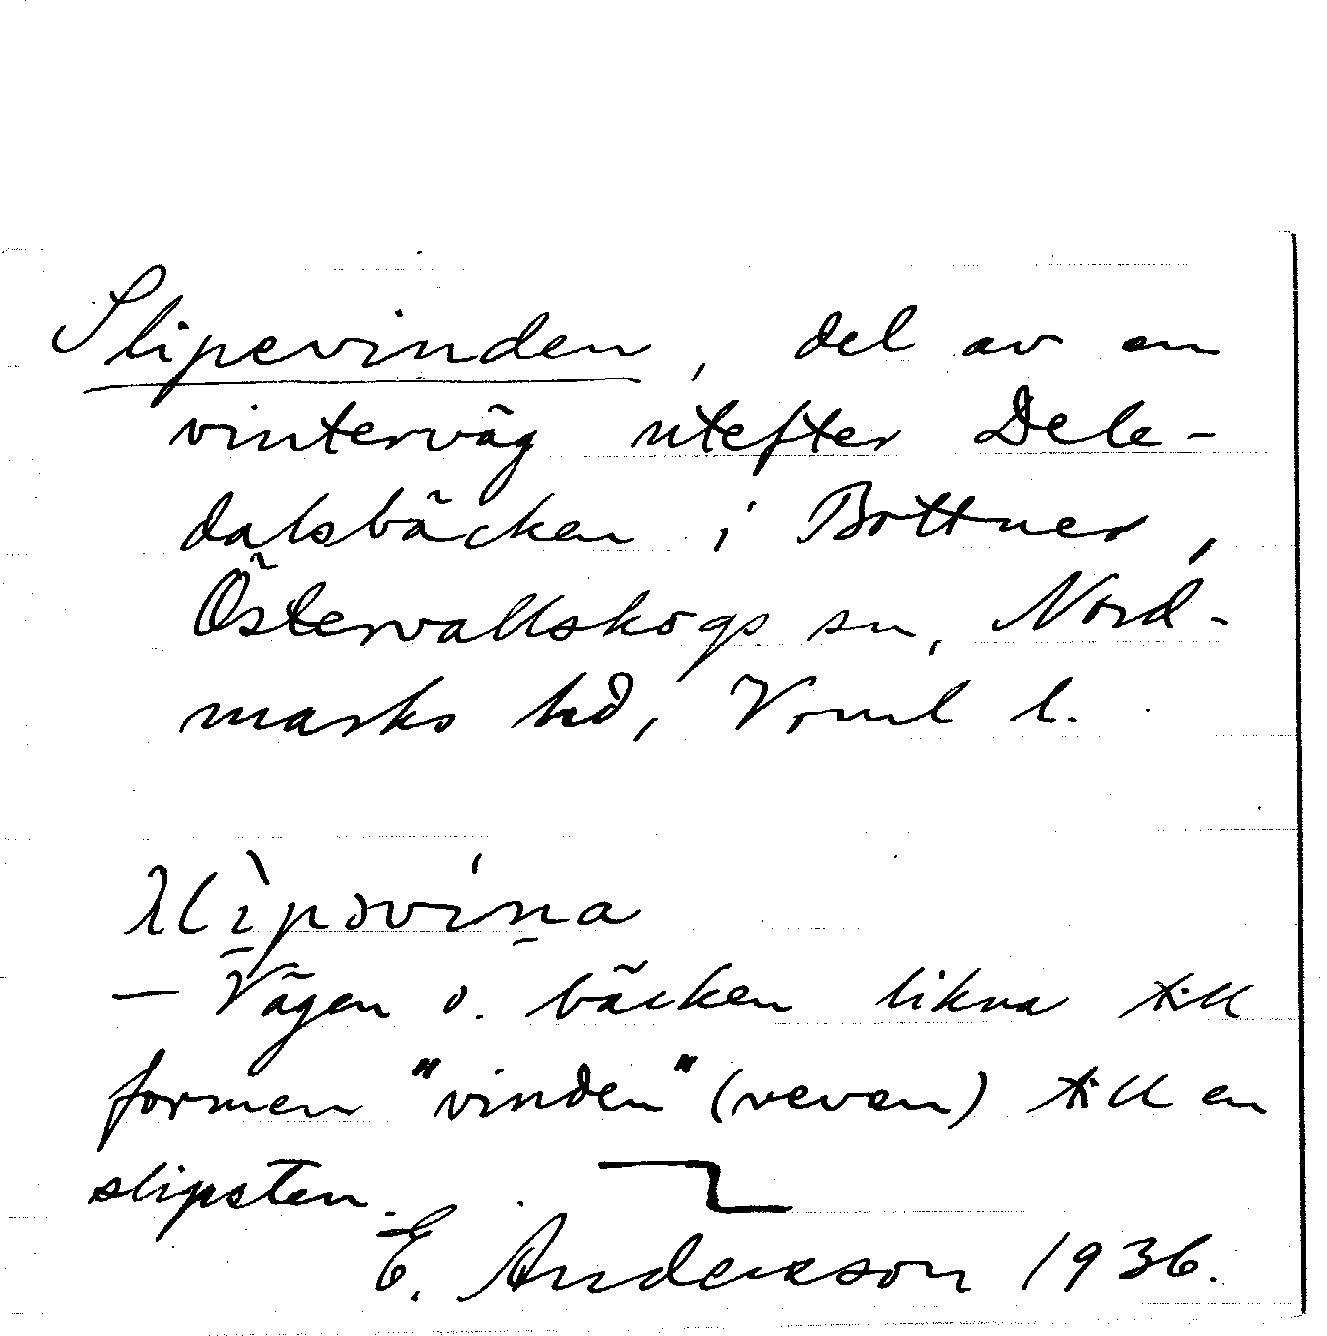 Slipevinden, del av en
vinterväg utefter Dele-
dalsbäcken i Bottner,
Östervallskogs sn, Nord-
marks hd, Vrml l.
— Vägen o. bäcken likna till
formen "vinden" (veven) till en
slipsten.
E. Andersson 1936.